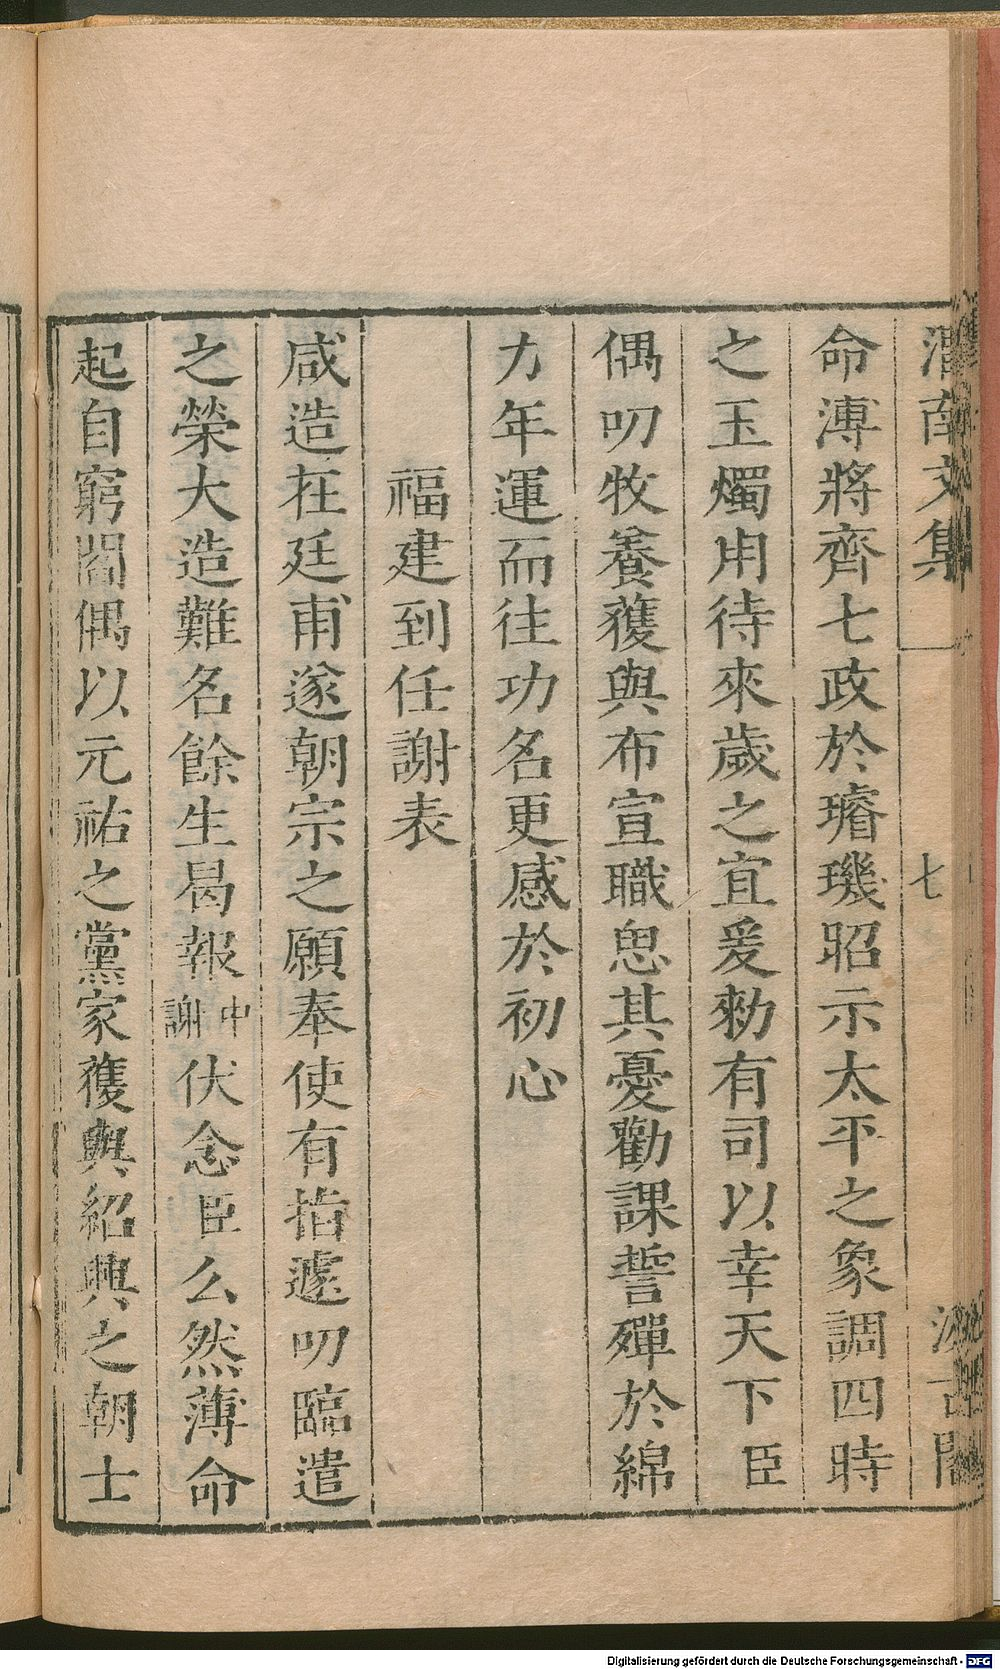 渭南文集 七 汲古閣
命漙將齊七政於璿璣昭示太平之象調四時
之玉燭用待來歲之宜爰勑有司以幸天下臣
偶叨牧養獲與布宣職思其憂勸課誓殫於綿
力年運而往功名更感於初心
福建到任謝表
咸造在廷甫遂朝宗之願奉使有指遽叨臨遣
之榮大造難名餘生曷報中謝伏念臣么然薄命
起自窮閻偶以元祐之黨家獲與紹興之朝士
Digitalisierung gefördert durch die Deutsche Forschungsgemeinschaft - DFG